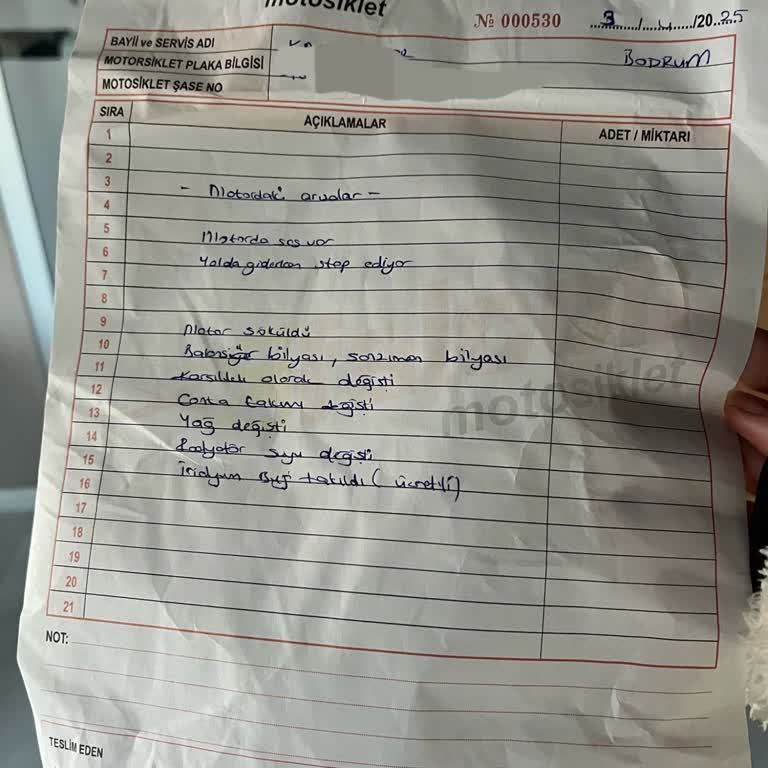 motosiklet
№ 000530 3/...../2025
BAYİİ ve SERVİS ADI
MOTORSİKLET PLAKA BİLGİSİ BODRUM
MOTOSİKLET ŞASE NO
SIRA AÇIKLAMALAR ADET / MİKTARI
1
2
3
- Motordaki arızalar -
4
5
Motorda ses var
6
Yolda giderken stop ediyor
7
8
9
Motor söküldü
10
bilyası, şanzıman bilyası
11
olarak değişti
12
Conta takımı değişti
13
Yağ değişti
14
Radyatör suyu değişti
15
İridyum Buji takıldı (ücretli)
16
17
18
19
20
21
motosiklet
NOT:
TESLİM EDEN